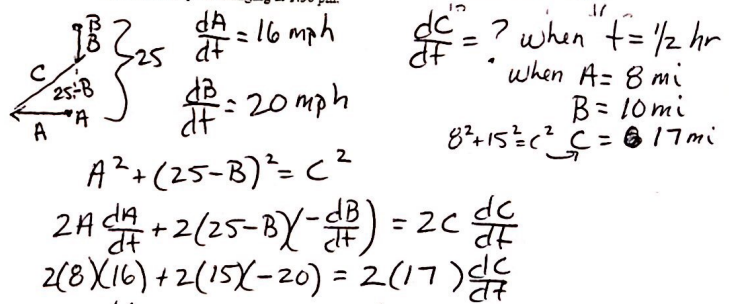 B
B
} 25
C
25-B
A
A
dA/dt = 16 mph
dB/dt = 20 mph
dC/dt = ? when t = 1/2 hr
when A = 8 mi
B = 10 mi
8²+15²=c² C = 17 mi
A² + (25-B)² = C²
2A dA/dt + 2(25-B)(-dB/dt) = 2C dC/dt
2(8)(16) + 2(15)(-20) = 2(17) dC/dt